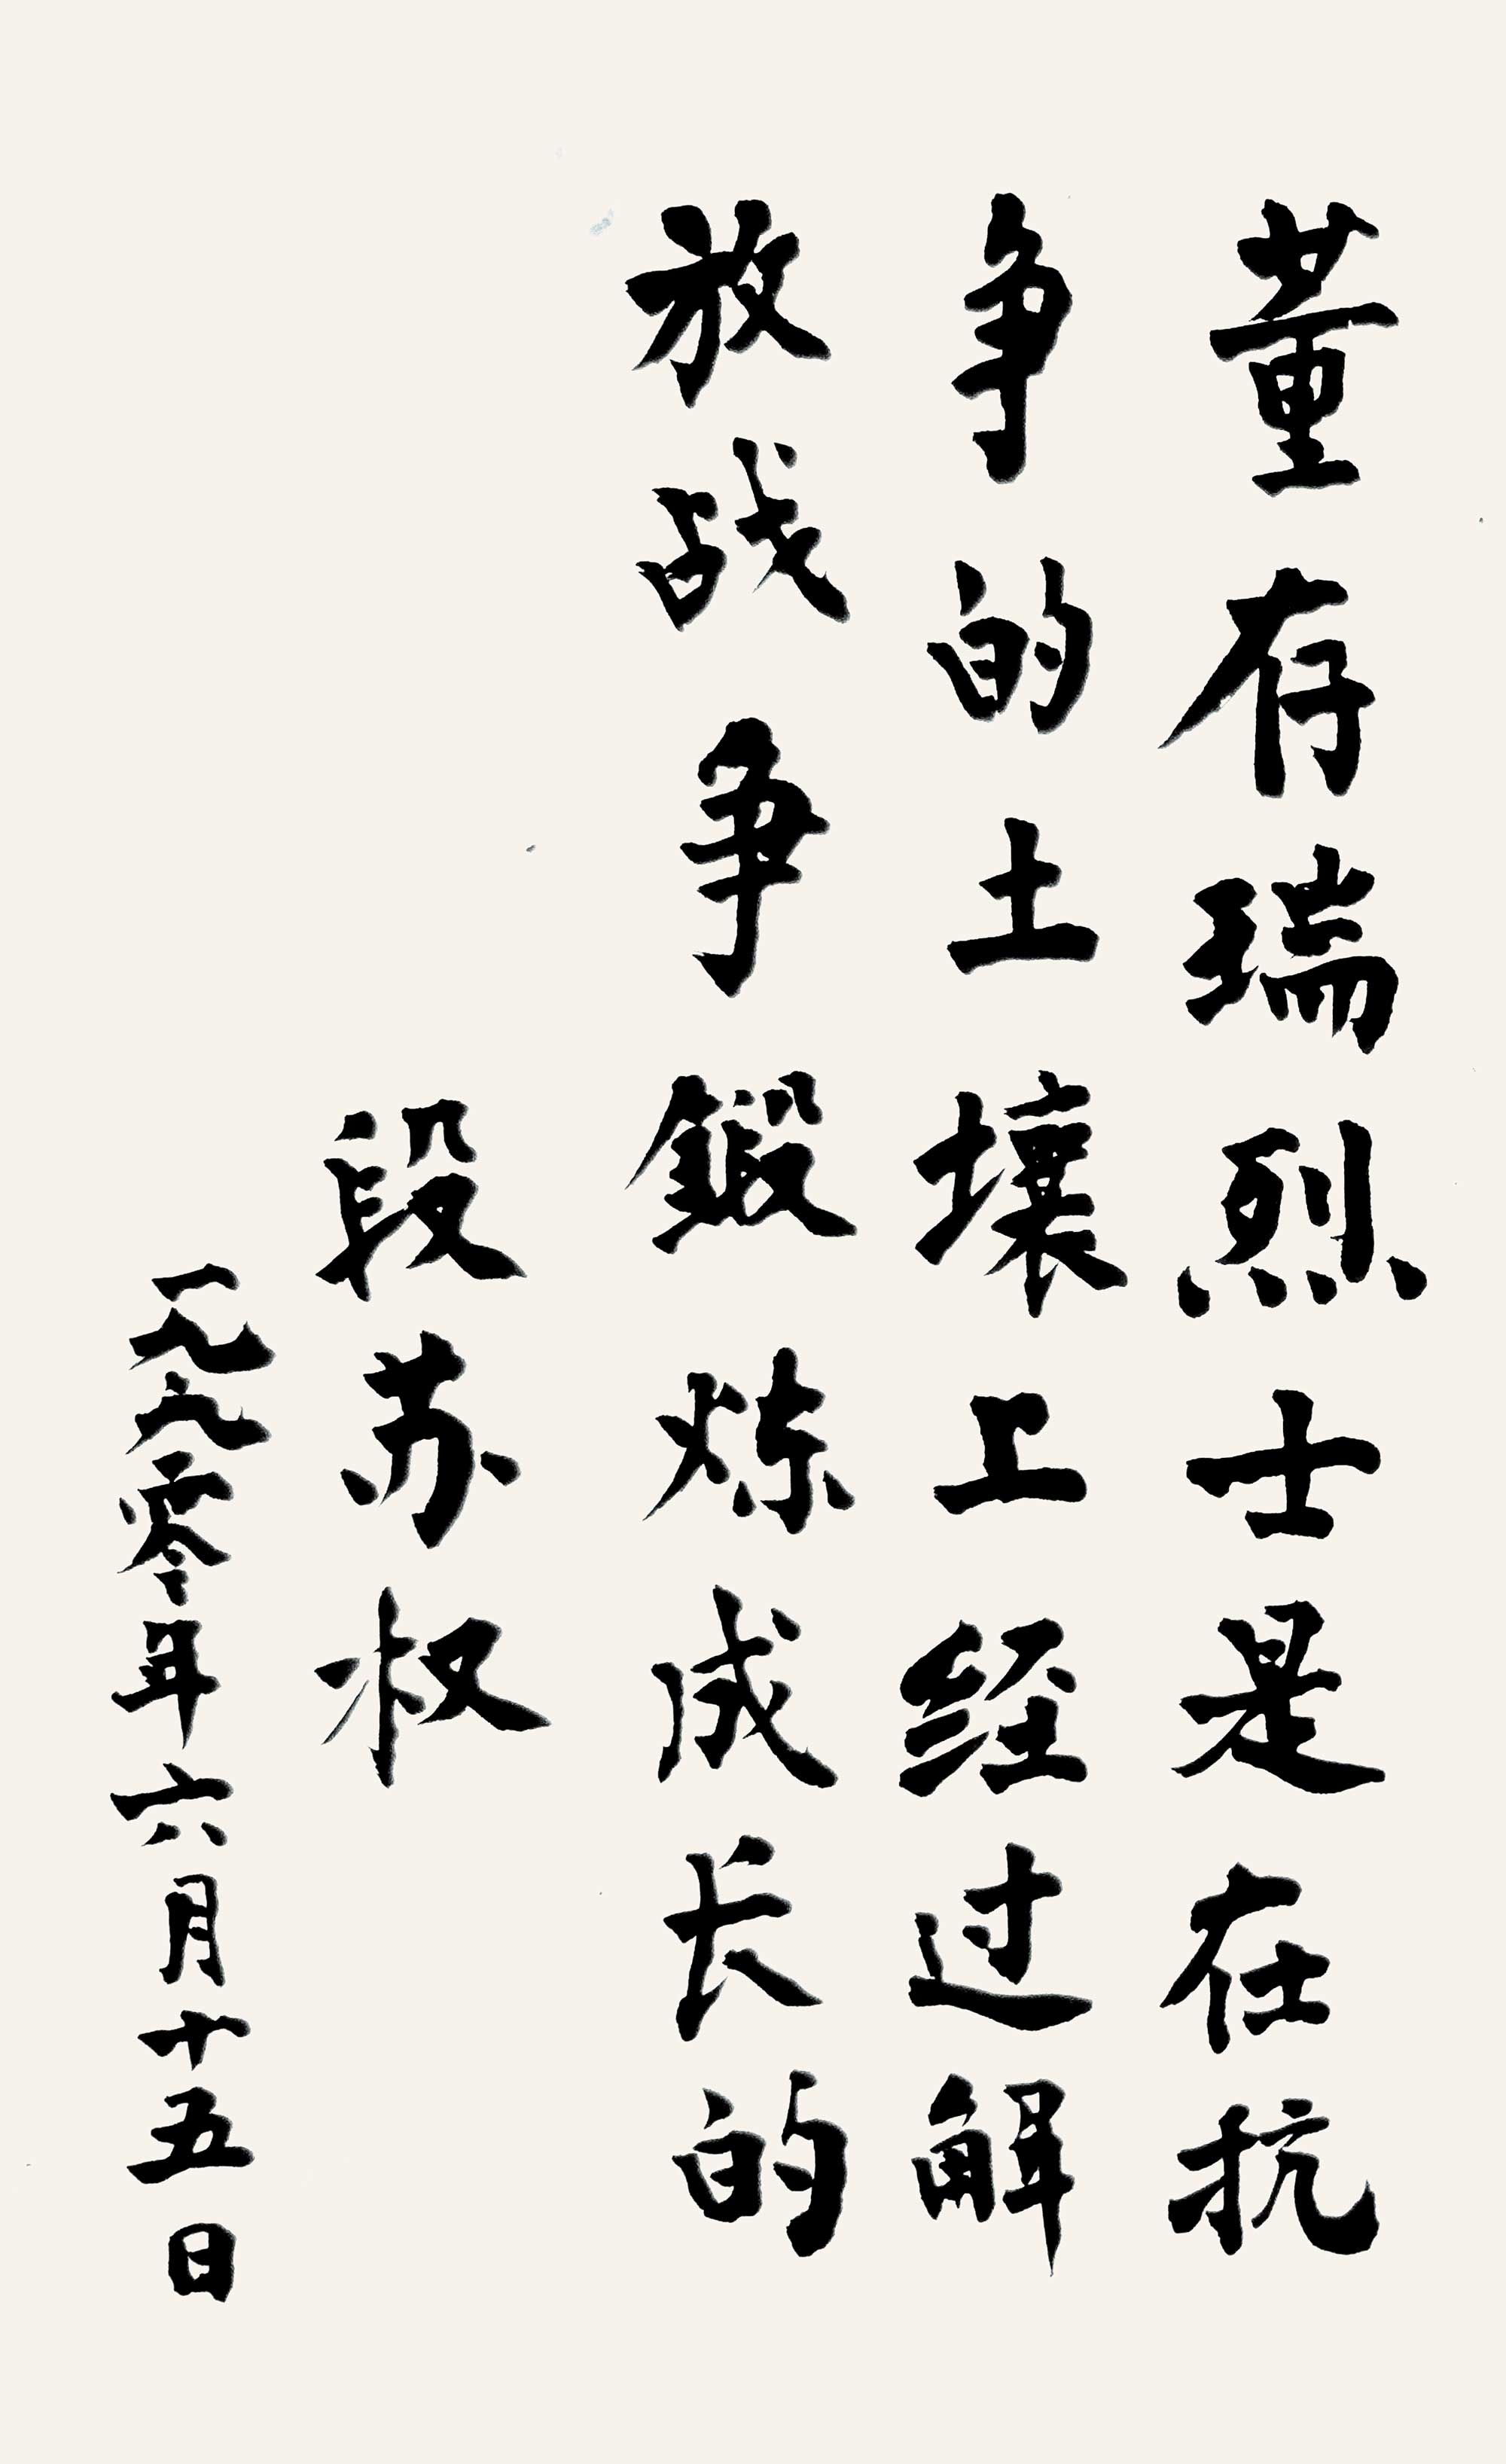 董存瑞烈士是在抗
争的土壤上经过解
放战争鍛炼成长的
段苏权
一九九零年六月十五日